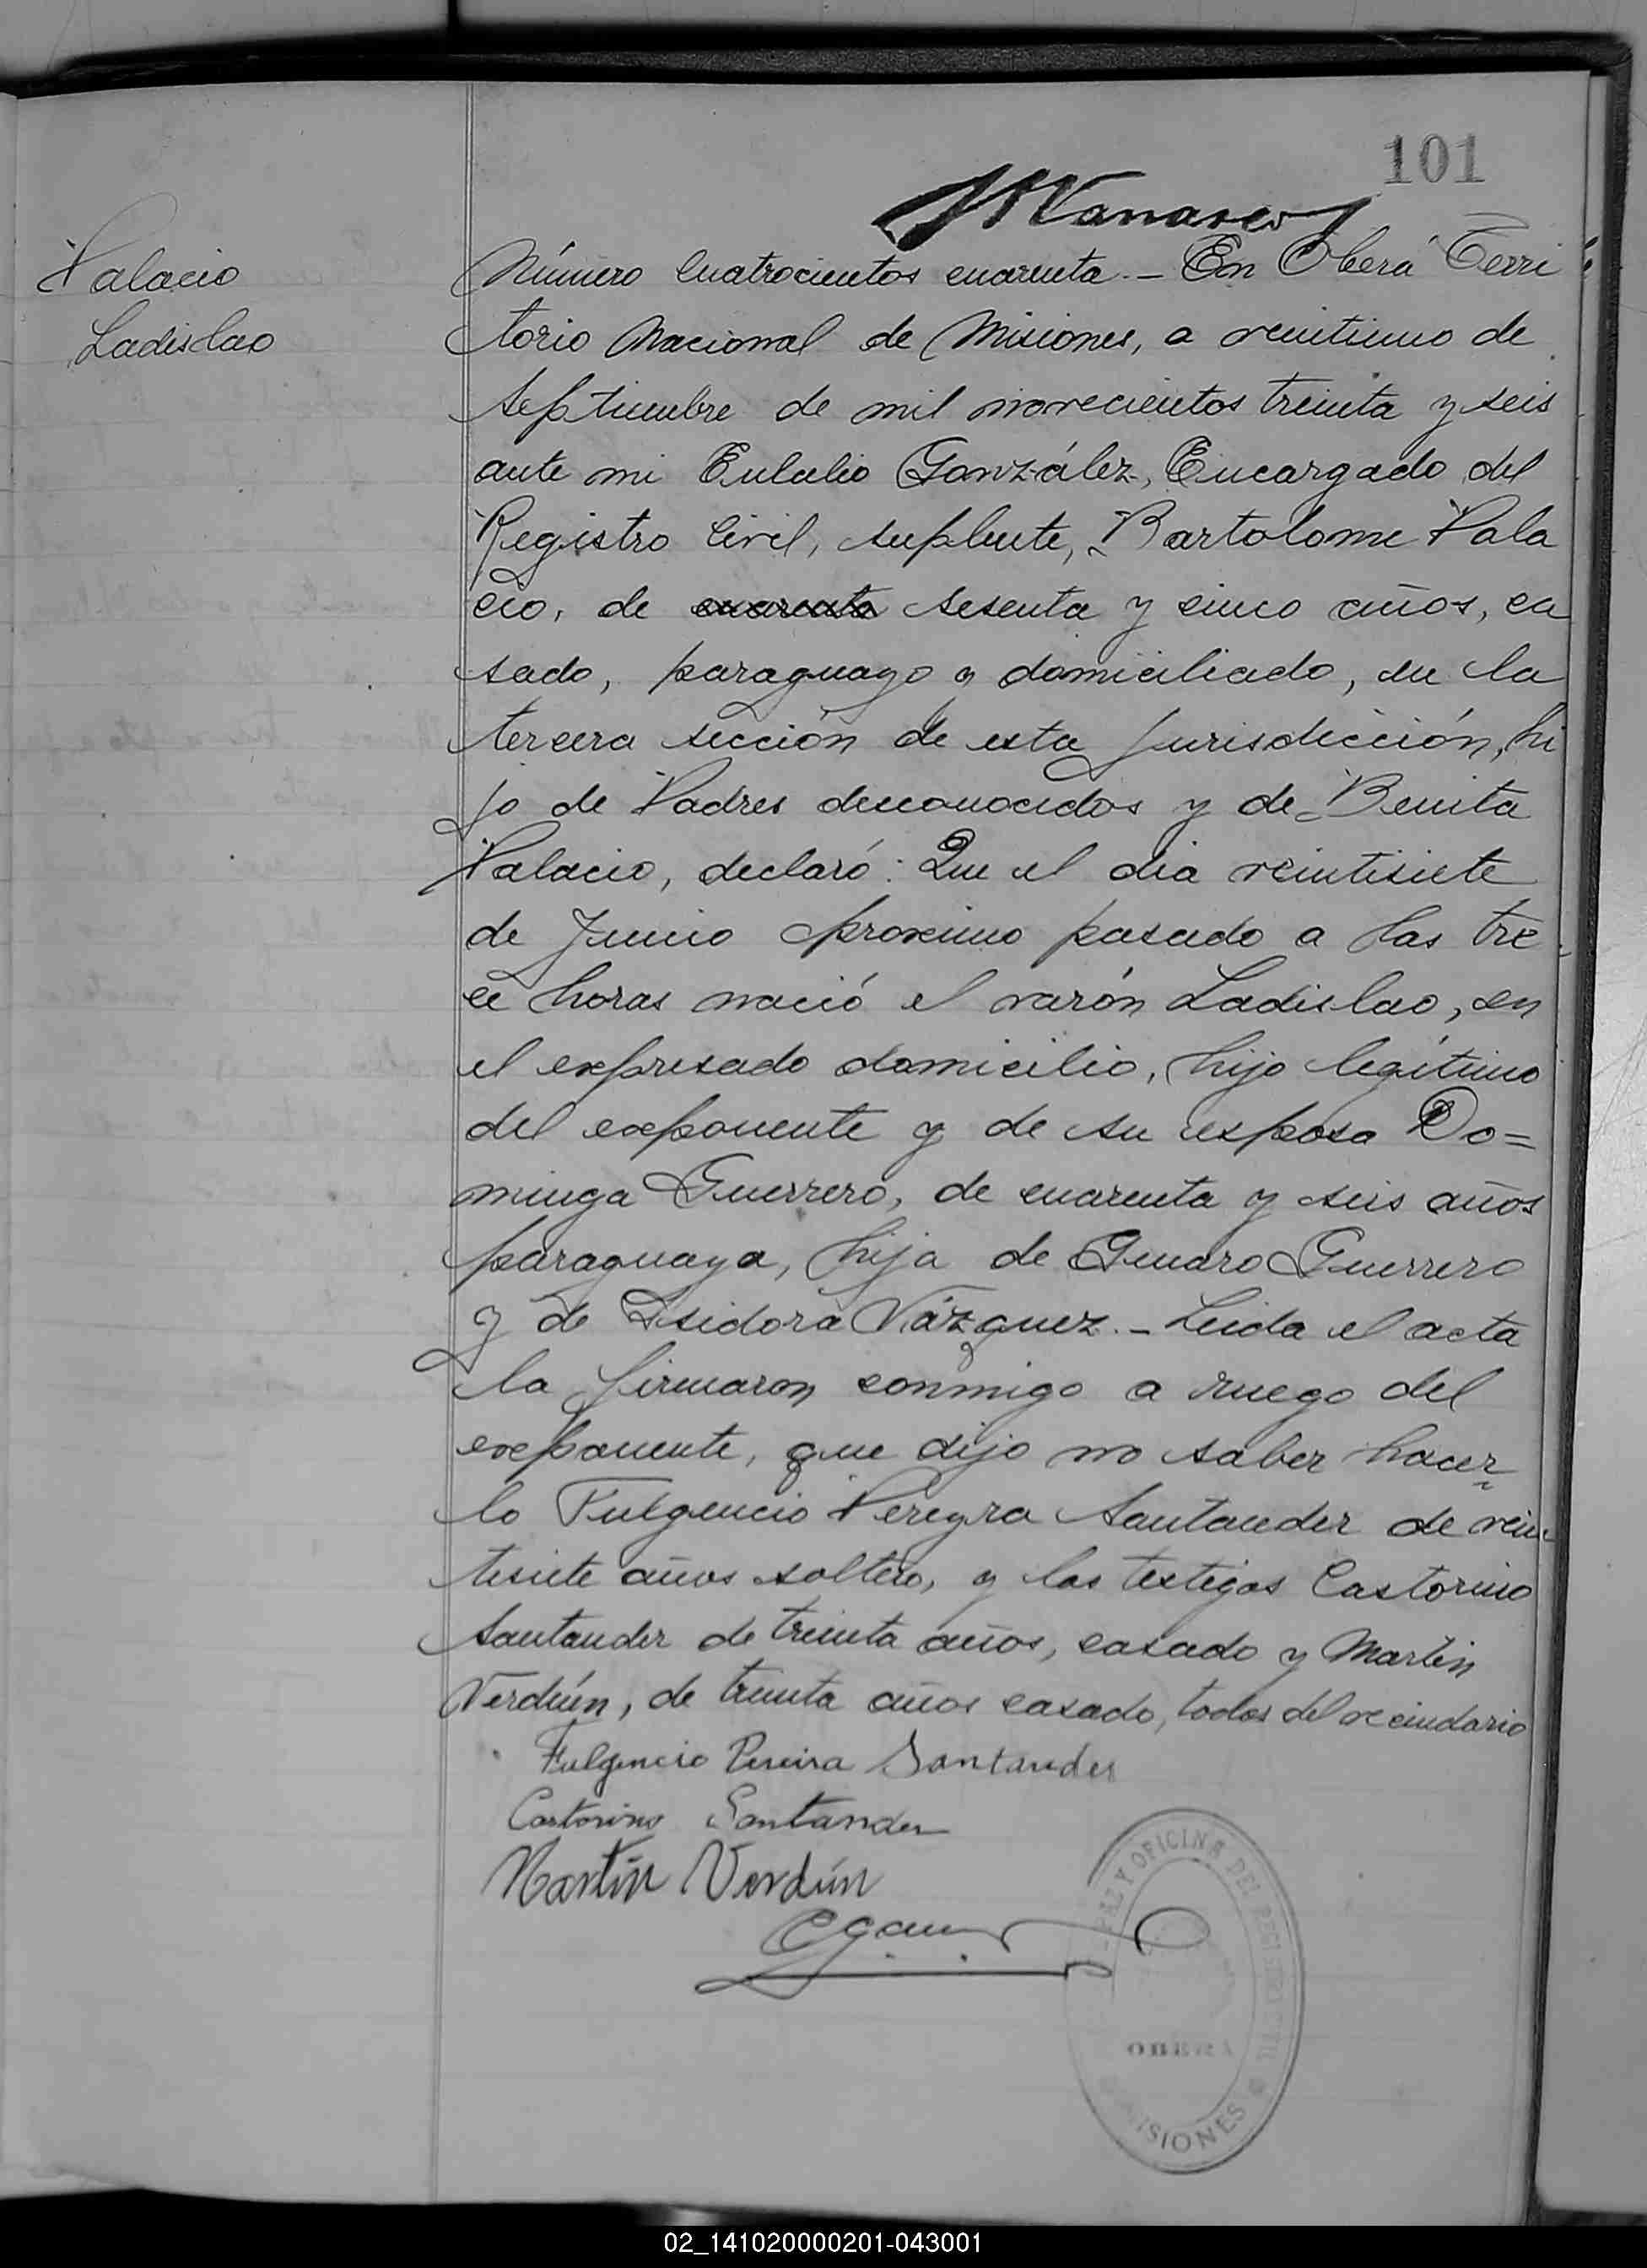 101
Palacio
Ladislao
Número cuatrocientos cuarenta.- En Oberá Terri
torio Nacional de Misiones, a veintiuno de
Septiembre de mil novecientos treinta y seis
ante mi Eulalio González, Encargado del
Registro Civil, suplente, Bartolome Pala
cio, de cuarenta sesenta y cinco años, ca
sado, paraguayo y domiciliado, en la
tercera sección de esta jurisdicción, hi
jo de Padres desconocidos y de Benita
Palacio, declaró: Que el dia veintisiete
de Junio proximo pasado a las tre
ce horas nació el varón Ladislao, en
el expresado domicilio, hijo legítimo
del exponente y de su esposa Do=
minga Guerrero, de cuarenta y seis años
paraguaya, hija de Genaro Guerrero
y de Isidora Vázquez.- Leida el acta
la firmaron conmigo a ruego del
exponente, que dijo no saber hacer
lo Fulgencio Pereyra Santander de vein
tisiete años soltero, y los testigos Castorino
Santander de treinta años, casado y Martin
Verdún, de treinta años casado, todos del vecindario
Fulgencio Pereira Santander
Castorino Santander
Martín Verdún
Y OFICINA DEL REGISTRO CIVIL
OBERA
MISIONES
02_141020000201-043001